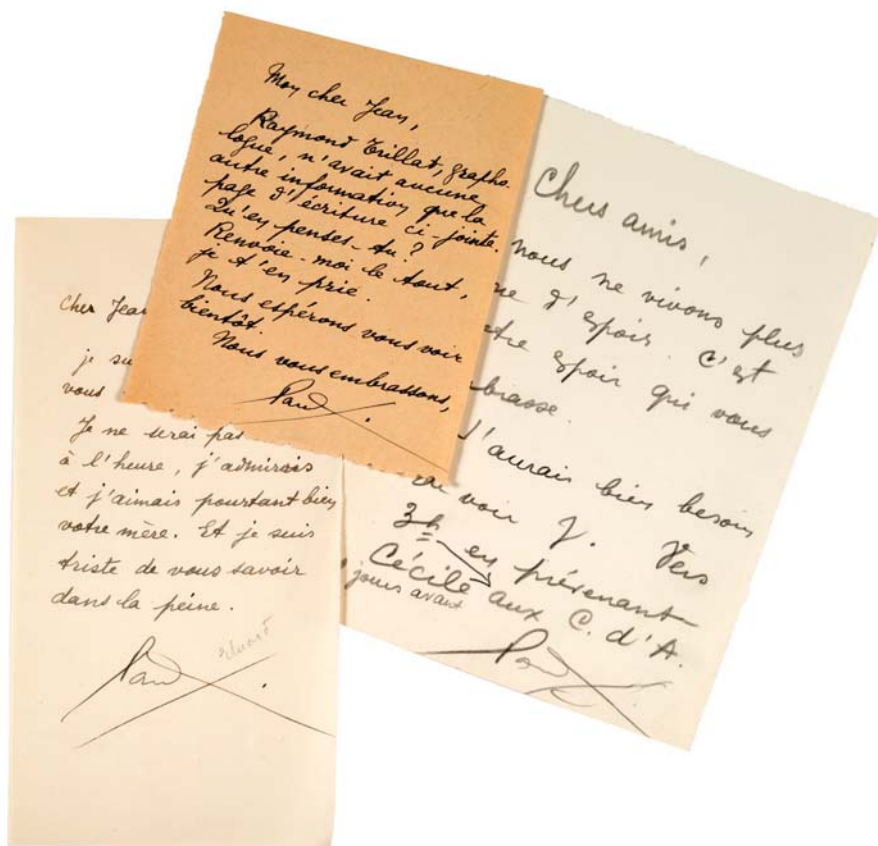 Mon cher Jean,
Raymond Trillat, grapho-
logue, n'avait aucune
autre information que la
page d'écriture ci-jointe.
Qu'en penses-tu ?
Renvoie-moi le tout,
je t'en prie.
Nous espérons vous voir
bientôt.
Nous vous embrassons,
Paul.
Chers amis,
nous ne vivons plus
d'espoir. C'est
espoir qui vous
J'aurais bien besoin
voir J. Vers
3h en prévenant
Cécile aux C. d'A.
jours avant
Paul.
Cher Jean
je
vous
Je ne serai pas
à l'heure, j'admirais
et j'aimais pourtant bien
votre mère. Et je suis
triste de vous savoir
dans la peine.
Eluard
Paul.